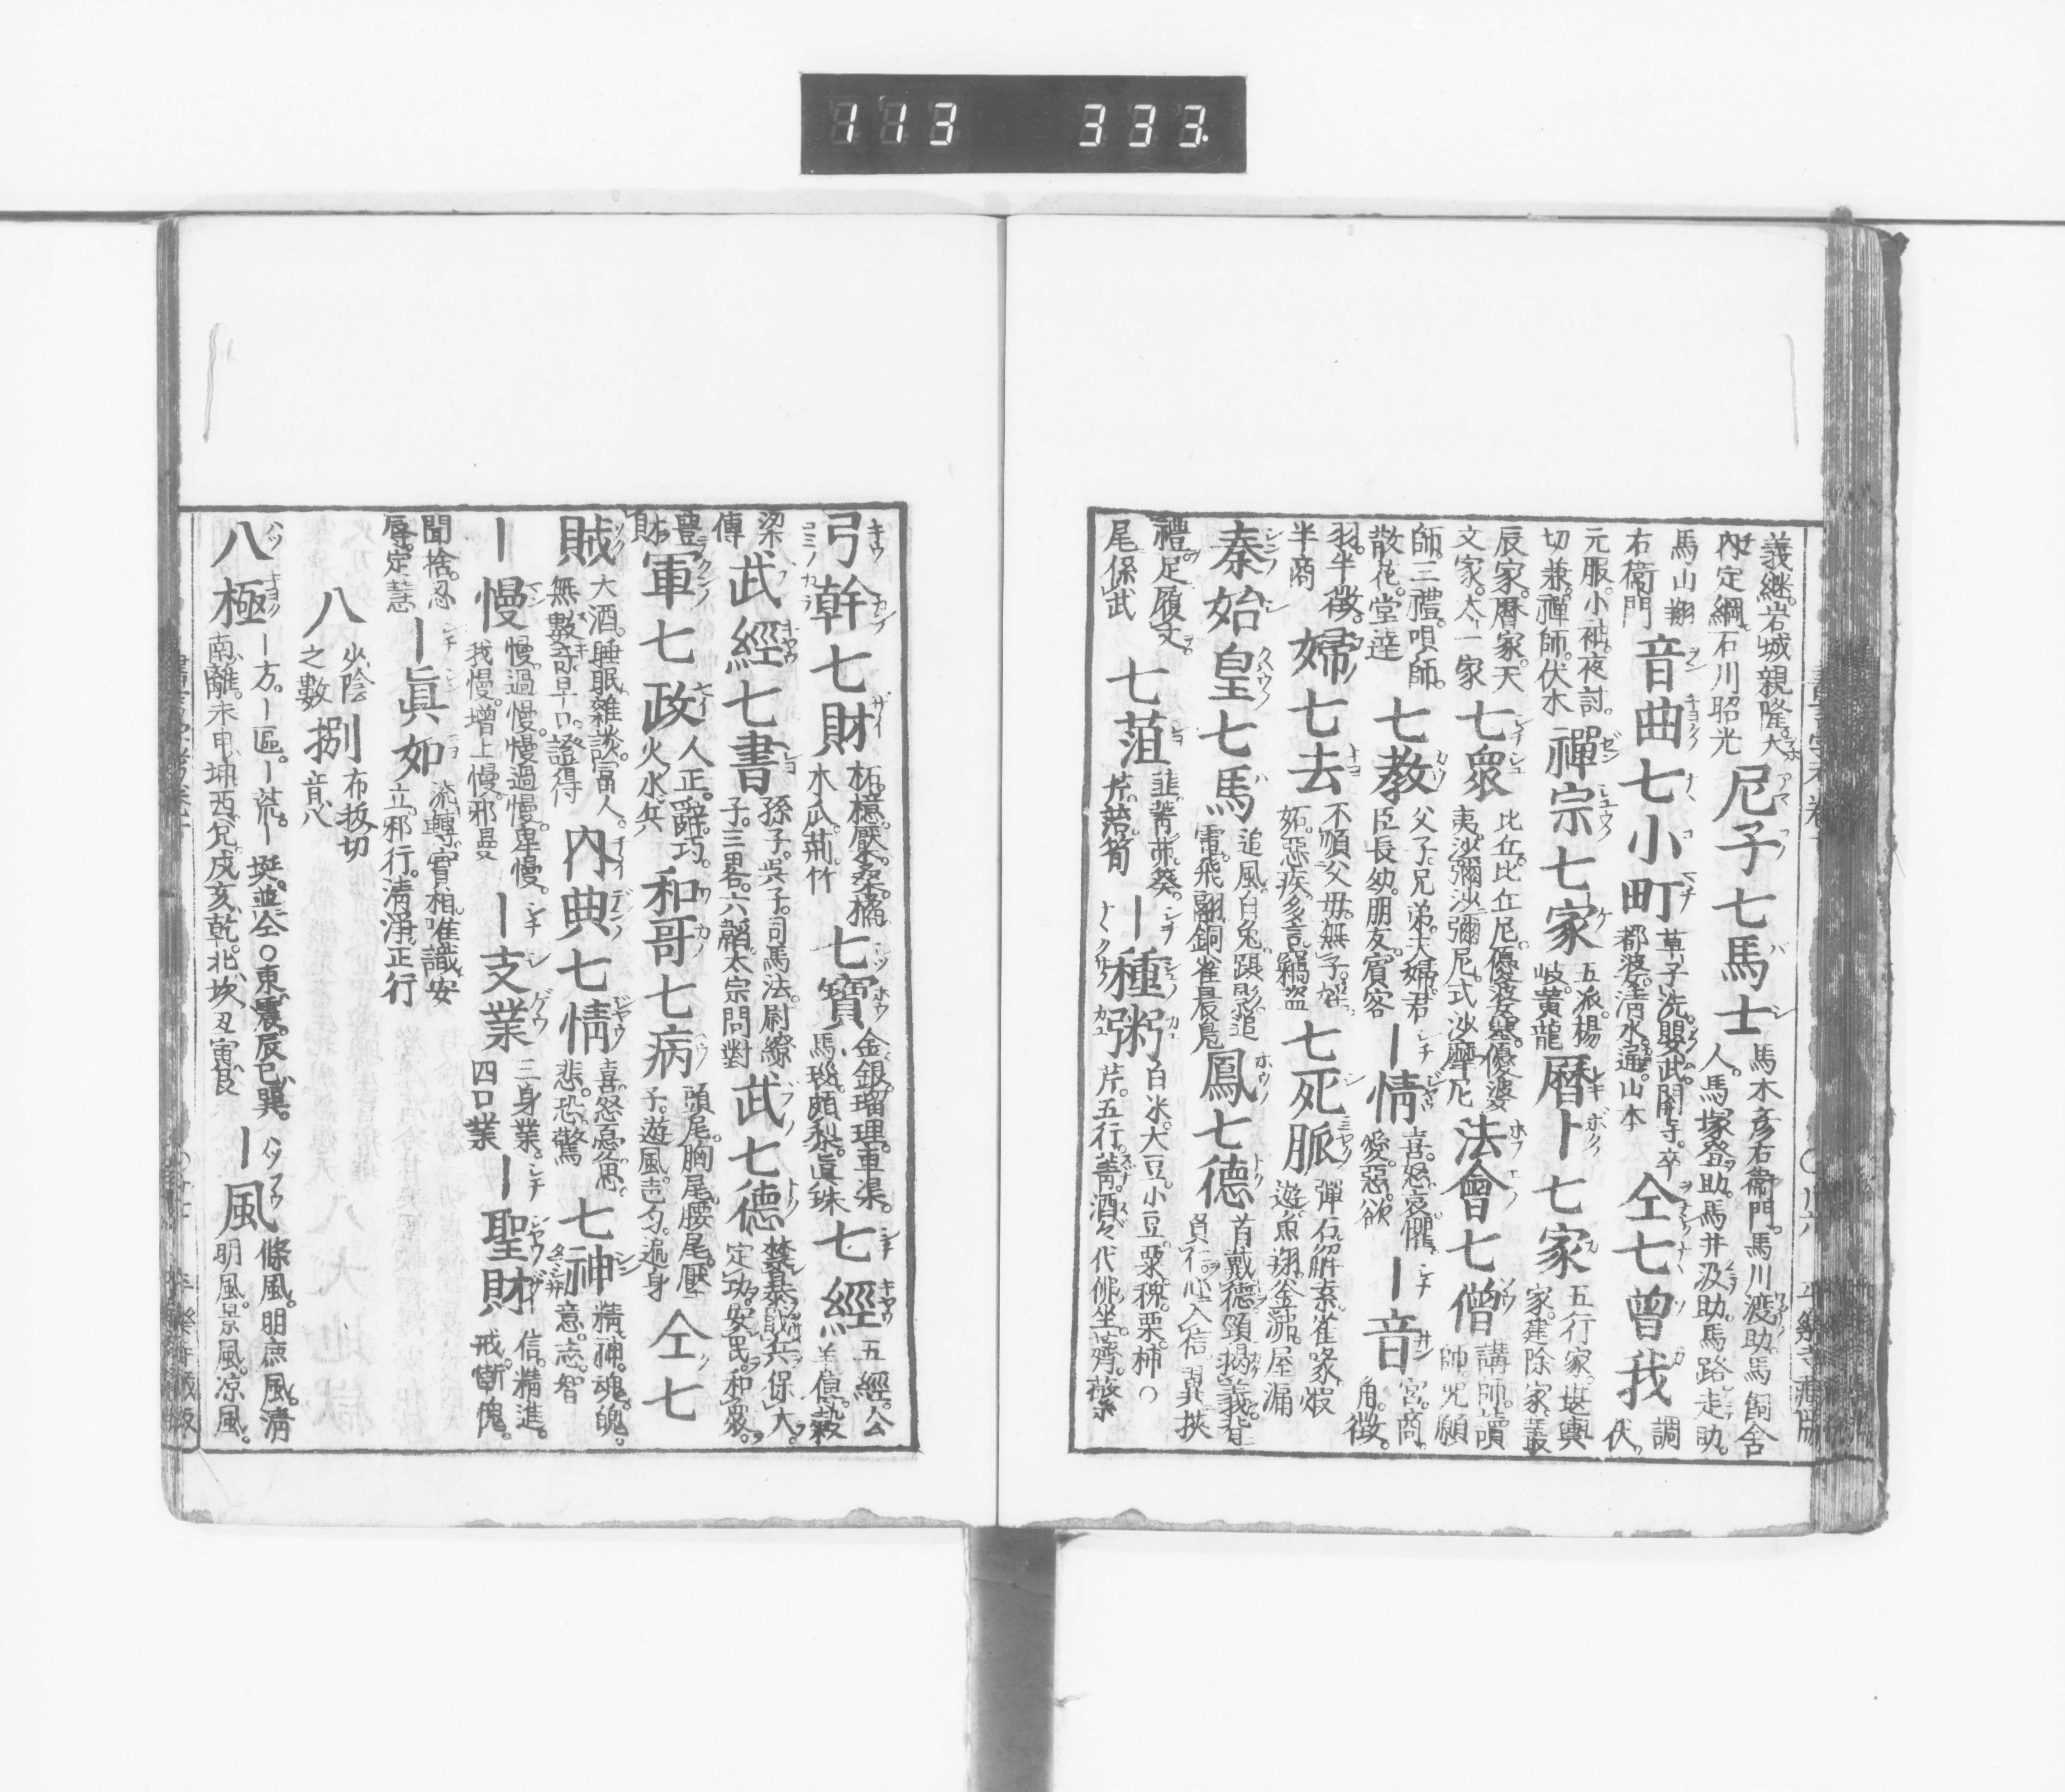 113 333
義継。岩城親隆。大
内定綱。石川昭光 尼子七馬士 馬木彦右衞門。馬川渡助。馬飼舍
人。馬塚登助。馬井汲助。馬路走助。
馬山翔
右衞門 音曲七小町 草子洗。鸚武。關寺。卒
都婆。清水。通。山本 仝七曾我 調
伏。
元服。小袖。夜討。
切兼。禪師。伏木 禪宗七家 五派。楊
岐。黄龍 暦卜七家 五行家。堪輿
家。建除家。叢
辰家。暦家。天
文家。太一家 七衆 比丘。比丘尼。優婆塞。優婆
夷。沙彌。沙彌尼。式沙摩尼 法會七僧 講師。讀
師。咒願
師。三禮。唄師。
散花。堂達 七教 父子。兄弟。夫婦。君
臣。長幼。朋友。賓客 ー情 喜。怒。哀。懼。
愛。惡。欲 ー音 宮。商。
角。徴。
羽。半徴。
半商 婦七去 不順父母。無子。婬。
妬。惡疾。多言。竊盜 七死脈 彈石。解索。雀啄。蝦
遊。魚翔。釜沸。屋漏
秦始皇七馬 追風。白兔。躡影。追
電。飛翮。銅雀。晨鳧 鳳七德 首戴德。頸揭義。背
負仁。心入信。翼挾
禮。足履文。
尾係武 七菹 韭。菁。茆。葵。
芹。菭。筍 ー種粥 白米。大豆。小豆。粟。稗。栗。柿○
芹。五行。菁。酒々代。佛坐。薺。蘩
弓幹七財 柘。檍。檿。桑。橘。
木瓜。荊。竹 七寶 金。銀。瑠理。車渠。
馬瑙。頗梨。眞珠 七經 五經。公
羊傳。穀
梁
傳 武經七書 孫子。吳子。司馬法。尉繚
子。三畧。六韜。太宗問對 武七德 禁暴。戢兵。保大。
定功。安民。和衆。
豊
財 軍七政 人。正。辭。巧。
火。水。兵 和哥七病 頭尾。胸尾。腰尾。黶
子。遊風。声匀。遍身 仝七
賊 大酒。睡眠。雜談。富人。
無數奇。早口。證得 內典七情 喜。怒。憂。思。
悲。恐。驚 七神 精。神。魂。魄。
意。志。智
ー慢 慢。過慢。慢過慢。卑慢。
我慢。增上慢。邪曼 ー支業 三身業。
四口業 ー聖財 信。精進。
戒。慚愧。
聞捨。忍
辱。定慧 ー眞如 流轉。實相。唯識。安
立。邪行。淸淨。正行
八 少陰
之數 捌 布拔切
音八
八極 ー方。ー區。ー荒。ー埏。並仝○東震。辰巳巽。
南離。未申坤。西兌。戌亥乾。北坎。丑寅艮 ー風 條風。明庶風。淸
明風。景風。凉風。